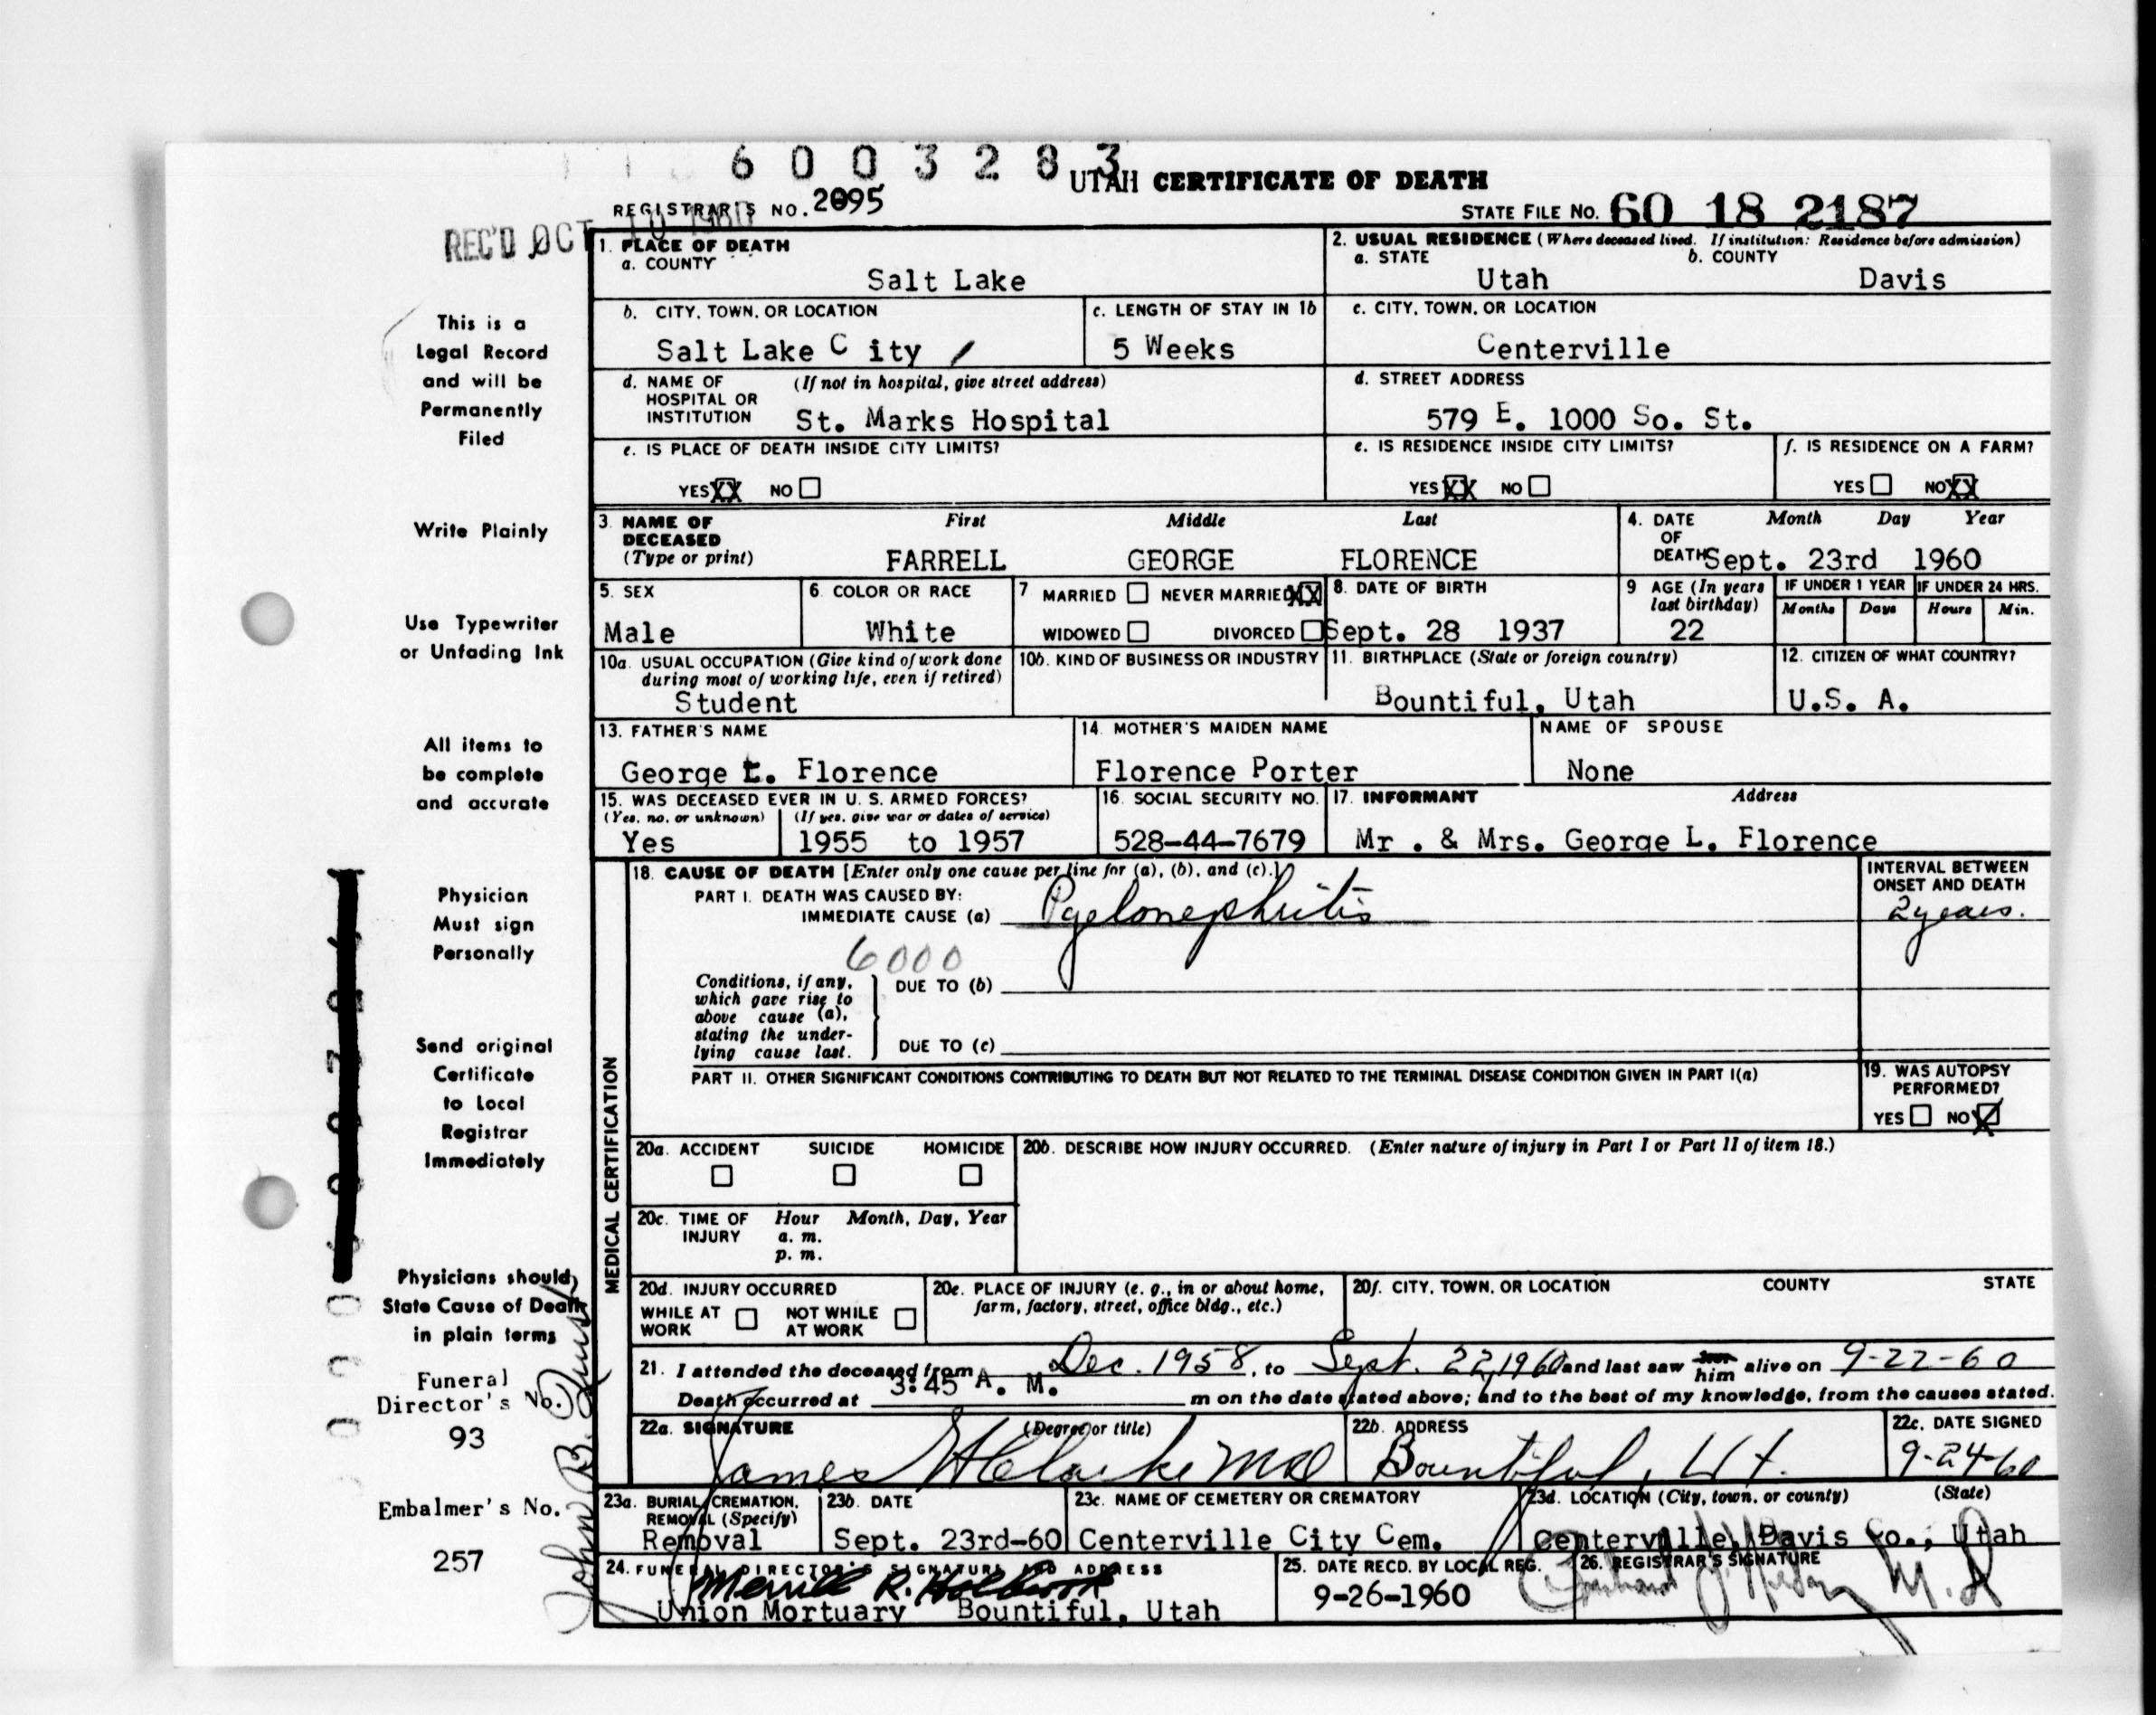 6 0 0 3 2 8 3
UTAH CERTIFICATE OF DEATH
REGISTRAR'S NO. 2095
STATE FILE NO. 60 18 2187
REC'D OCT 10 1960
1. PLACE OF DEATH
a. COUNTY
Salt Lake
2. USUAL RESIDENCE (Where deceased lived. If institution: Residence before admission)
a. STATE b. COUNTY
Utah Davis
b. CITY, TOWN, OR LOCATION
Salt Lake C ity /
c. LENGTH OF STAY IN 1b
5 Weeks
c. CITY, TOWN, OR LOCATION
Centerville
This is a
Legal Record
and will be
Permanently
Filed
d. NAME OF (If not in hospital, give street address)
HOSPITAL OR
INSTITUTION St. Marks Hospital
d. STREET ADDRESS
579 E. 1000 So. St.
e. IS PLACE OF DEATH INSIDE CITY LIMITS?
YES XX NO
e. IS RESIDENCE INSIDE CITY LIMITS?
YES XX NO
f. IS RESIDENCE ON A FARM?
YES NO XX
Write Plainly
3. NAME OF First Middle Last
DECEASED
(Type or print) FARRELL GEORGE FLORENCE
4. DATE Month Day Year
OF
DEATH Sept. 23rd 1960
Use Typewriter
or Unfading Ink
5. SEX
Male
6. COLOR OR RACE
White
7 MARRIED NEVER MARRIED XX
WIDOWED DIVORCED
8. DATE OF BIRTH
Sept. 28 1937
9 AGE (In years
last birthday)
22
IF UNDER 1 YEAR
Months Days
IF UNDER 24 HRS.
Hours Min.
10a. USUAL OCCUPATION (Give kind of work done
during most of working life, even if retired)
Student
10b. KIND OF BUSINESS OR INDUSTRY
11. BIRTHPLACE (State or foreign country)
Bountiful, Utah
12. CITIZEN OF WHAT COUNTRY?
U.S. A.
All items to
be complete
and accurate
13. FATHER'S NAME
George L. Florence
14. MOTHER'S MAIDEN NAME
Florence Porter
NAME OF SPOUSE
None
15. WAS DECEASED EVER IN U. S. ARMED FORCES?
(Yes, no, or unknown) (If yes, give war or dates of service)
Yes 1955 to 1957
16. SOCIAL SECURITY NO.
528-44-7679
17. INFORMANT Address
Mr . & Mrs. George L. Florence
Physician
Must sign
Personally
MEDICAL CERTIFICATION
18. CAUSE OF DEATH [Enter only one cause per line for (a), (b), and (c).]
PART I. DEATH WAS CAUSED BY:
IMMEDIATE CAUSE (a) Pyelonephritis
INTERVAL BETWEEN
ONSET AND DEATH
2 years.
6000
Conditions, if any,
which gave rise to
above cause (a),
stating the under-
lying cause last.
DUE TO (b)
DUE TO (c)
Send original
Certificate
to Local
Registrar
Immediately
PART II. OTHER SIGNIFICANT CONDITIONS CONTRIBUTING TO DEATH BUT NOT RELATED TO THE TERMINAL DISEASE CONDITION GIVEN IN PART I(a)
19. WAS AUTOPSY
PERFORMED?
YES NO X
20a. ACCIDENT SUICIDE HOMICIDE
20b. DESCRIBE HOW INJURY OCCURRED. (Enter nature of injury in Part I or Part II of item 18.)
20c. TIME OF Hour Month, Day, Year
INJURY a. m.
p. m.
Physicians should
State Cause of Death
in plain terms
20d. INJURY OCCURRED
WHILE AT NOT WHILE
WORK AT WORK
20e. PLACE OF INJURY (e. g., in or about home,
farm, factory, street, office bldg., etc.)
20f. CITY, TOWN, OR LOCATION COUNTY STATE
21. I attended the deceased from Dec. 1958, to Sept. 22, 1960 and last saw him alive on 9-22-60
Death occurred at 3:45 A. M. m on the date stated above; and to the best of my knowledge, from the causes stated.
Funeral
Director's No.
93
22a. SIGNATURE (Degree or title)
James H Clarke MD
22b. ADDRESS
Bountiful, Ut.
22c. DATE SIGNED
9-24-60
Embalmer's No.
257
John B.
23a. BURIAL, CREMATION,
REMOVAL (Specify)
Removal
23b. DATE
Sept. 23rd-60
23c. NAME OF CEMETERY OR CREMATORY
Centerville City Cem.
23d. LOCATION (City, town, or county) (State)
Centerville, Davis Co., Utah
24. FUNERAL DIRECTOR'S SIGNATURE AND ADDRESS
Merrill R. Holbrook
Union Mortuary Bountiful, Utah
25. DATE RECD. BY LOCAL REG.
9-26-1960
26. REGISTRAR'S SIGNATURE
M.D